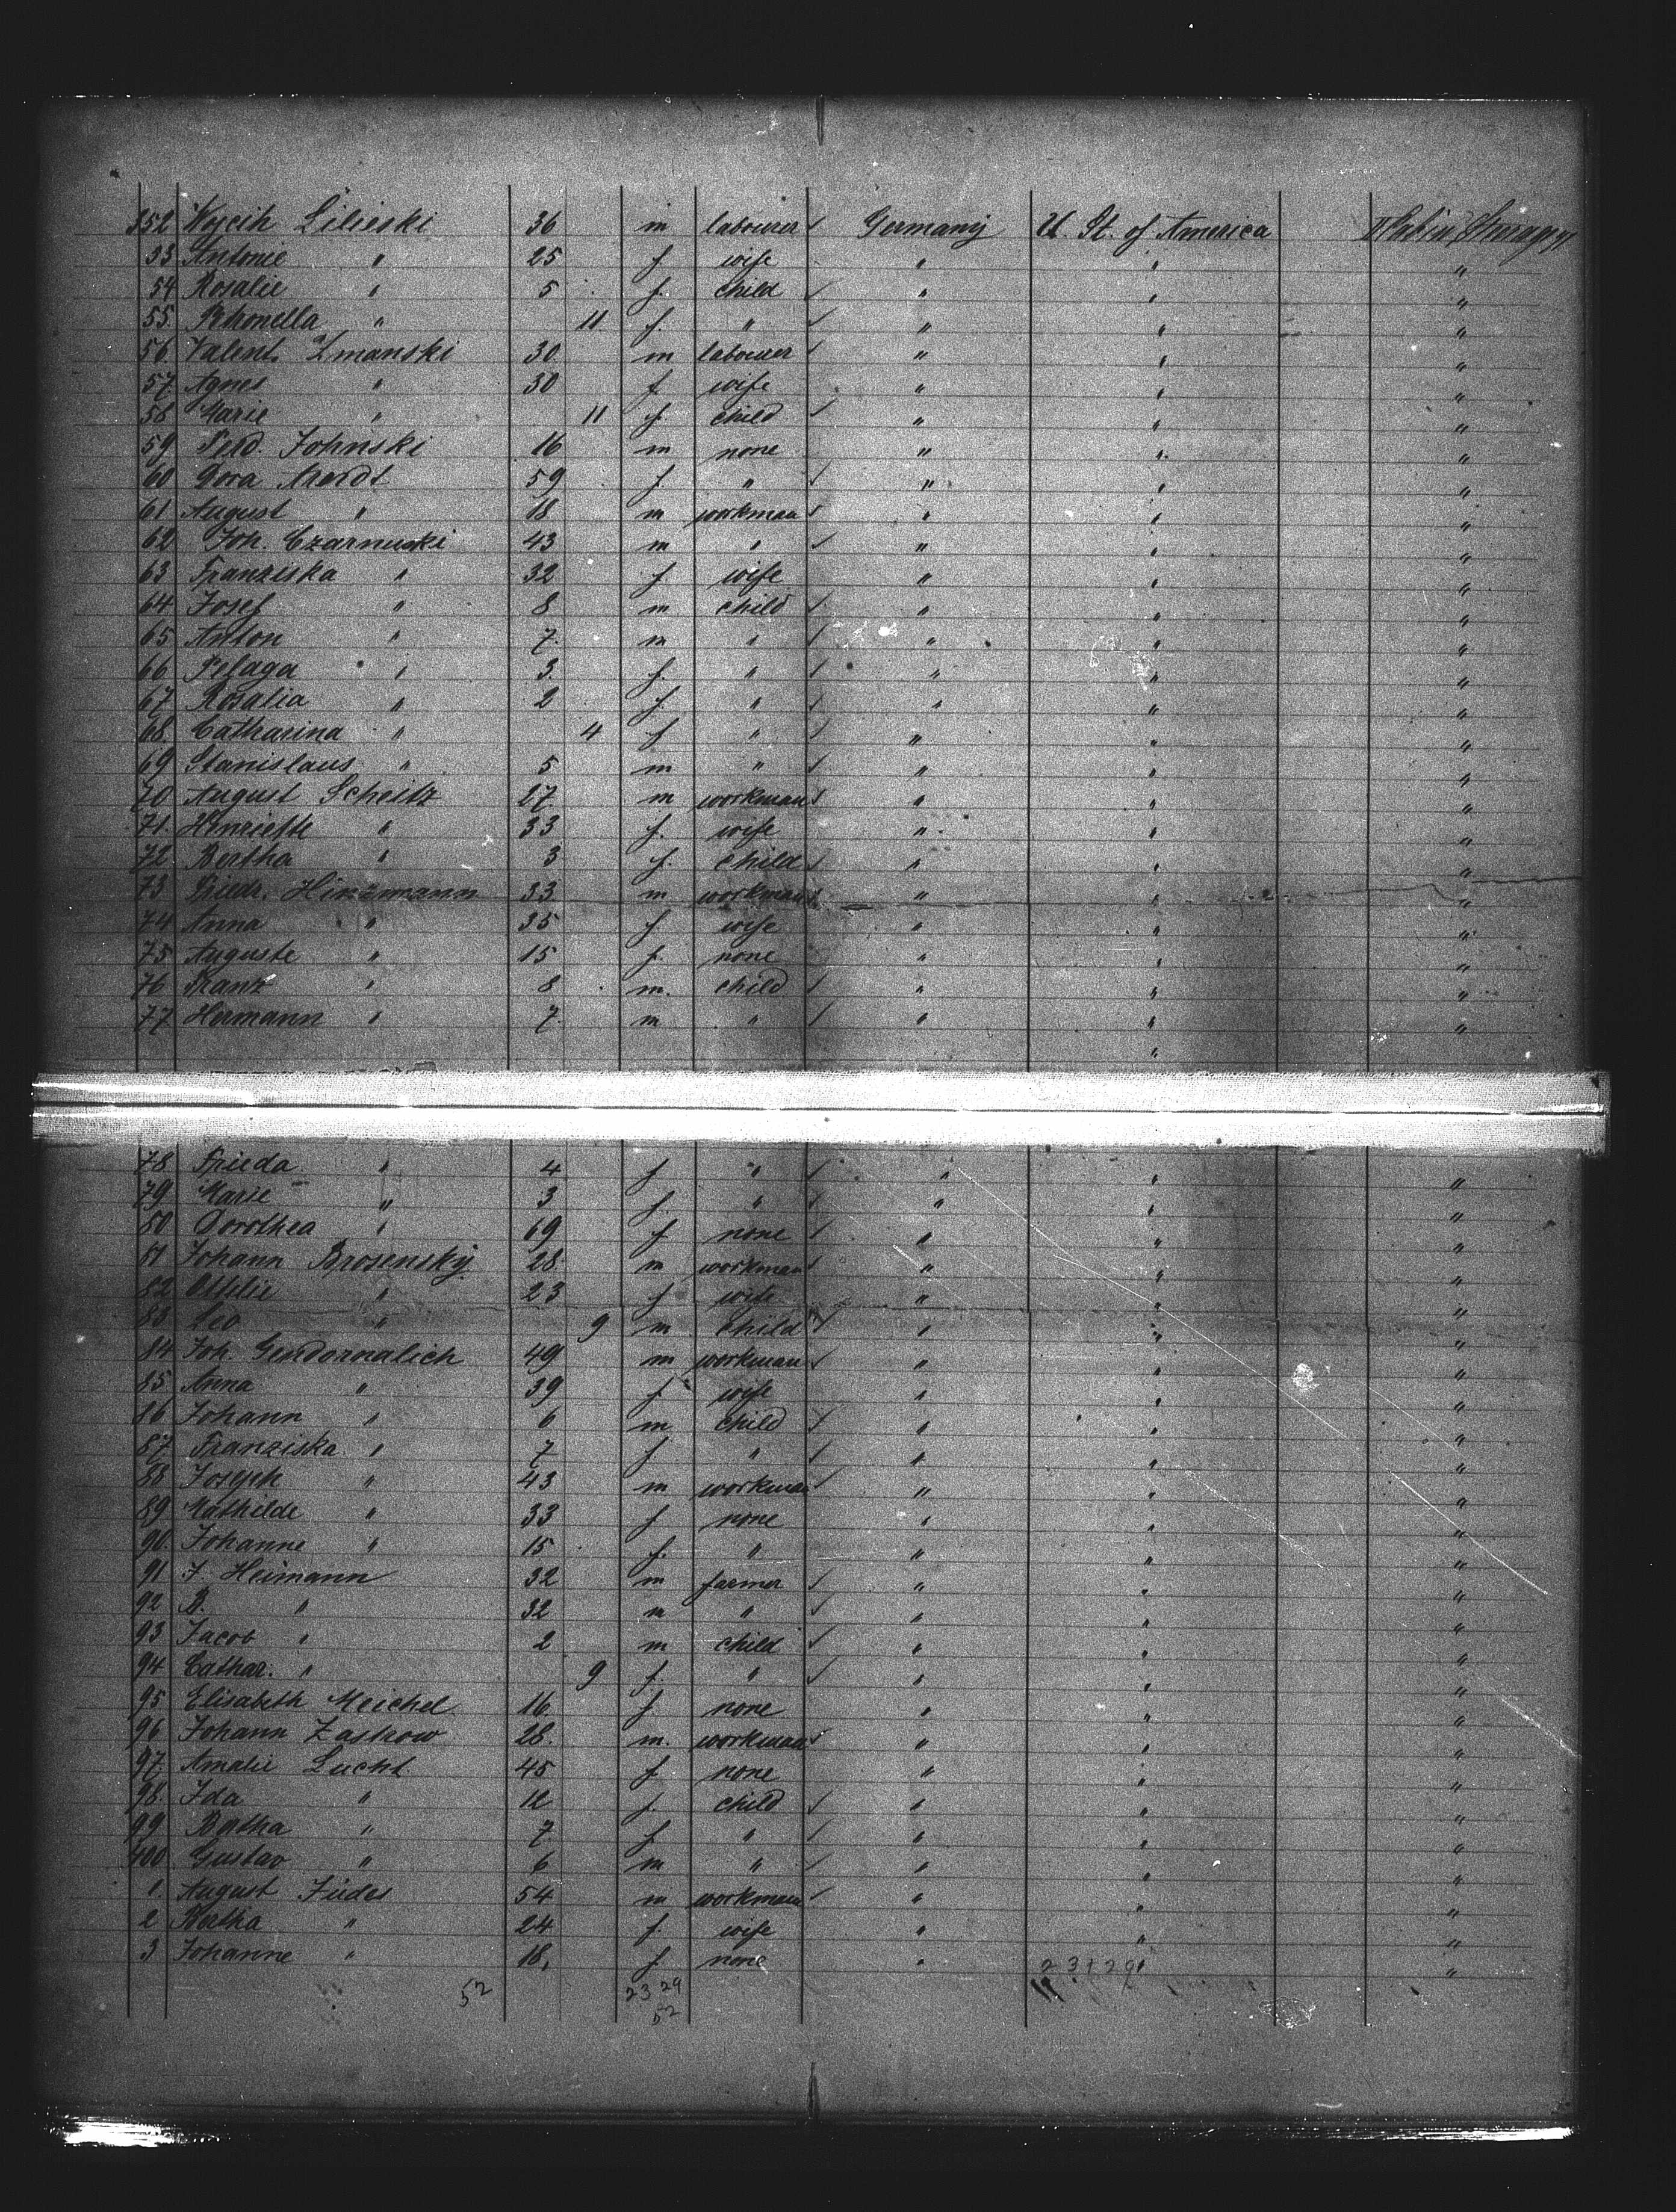 352 Wojcih Lilieski 36 m labourer Germany U. St. of America II Cabin
53 Antonie " 25 f wife " " "
54 Rosalie " 5 f. child " " "
55. Petronella " 11 f. " " " "
56 Valent. Zmanski 30 m labourer " " "
57 Agnes " 30 f wife " " "
58 Marie " 11 f. child " " "
59 Ferd. Johnski 16 m none " " "
60 Dora Merdt 59 f. " " " "
61 August " 18 m workman " " "
62 Joh. Czarnuski 43 m " " " "
63 Franziska " 32 f wife " " "
64 Josef " 8 m child " " "
65 Anton " 7. m " " " "
66 Pelaga " 3. f. " " " "
67 Rosalia " 2 f. " " " "
68. Catharina " 4 f " " " "
69 Stanislaus " 5 m " " " "
70 August Scheitz 27 m workman " " "
71. Henriette " 33 f. wife " " "
72 Bertha " 3 f. child " " "
73 Friedr. Hinzmann 33 m workman " " "
74 Anna " 35 f wife " " "
75 Auguste " 15 f. none " " "
76 Franz " 8 m. child " " "
77 Hermann " 7. m " " " "
"
78 Frieda " 4 f " " " "
79 Marie " 3 f. " " " "
80 Dorothea " 69 f none " " "
81 Johann Brosensky 28 m workman " " "
82 Ottilie " 23 f wife " " "
83 Leo " 9 m child " " "
84 Joh. Gendornalich 49 m workman " " "
85 Anna " 39 f wife " " "
86 Johann " 6 m child " " "
87 Franziska " 7 f " " " "
88 Joseph " 43 m workman " " "
89 Mathilde " 33 f none " " "
90. Johanne " 15 f. " " " "
91 J. Heimann 32 m farmer " " "
92 B. " 32 m " " " "
93 Jacob " 2 m child " " "
94 Cathar. " 9 f. " " " "
95 Elisabeth Meichel 16. f none " " "
96 Johann Zastrow 28. m. workman " " "
97 Amalie Lucht 45 f none " " "
98. Ida " 12 f. child " " "
99 Bertha " 7 f " " " "
400 Gustav " 6 m " " " "
1. August Züdes 54 m workman " " "
2 Bertha " 24 f. wife " " "
3 Johanne " 18, f none " " "
23+29
52 23 29
52